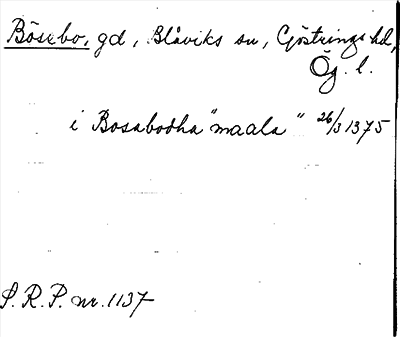 Bösebo, gd, Blåviks sn, Göstrings hd,
Ög. l.
i Bosabodha "maala" 26/3 1375
S. R. P. nr. 1137